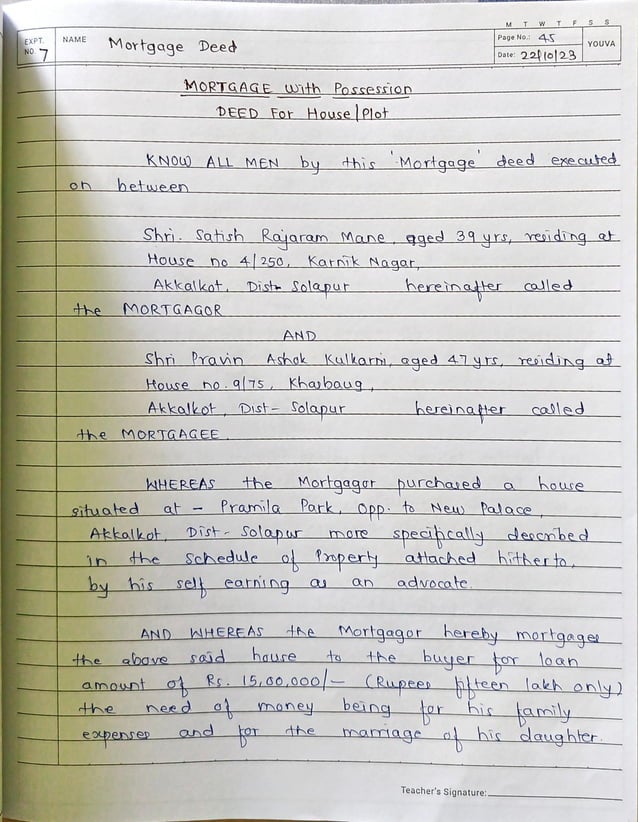 M T W T F S S
EXPT. NO. 7 NAME Mortgage Deed Page No.: 45 YOUVA
Date: 22/10/23
MORTGAGE with Possession
DEED For House/Plot
KNOW ALL MEN by this 'Mortgage' deed executed
on between
Shri. Satish Rajaram Mane, aged 39 yrs, residing at
House no 4/250, Karnik Nagar,
Akkalkot, Dist- Solapur hereinafter called
the MORTGAGOR
AND
Shri Pravin Ashok Kulkarni, aged 47 yrs, residing at
House no. 9/75, Khasbaug,
Akkalkot, Dist- Solapur hereinafter called
the MORTGAGEE.
WHEREAS the Mortgagor purchased a house
situated at - Pramila Park, Opp. to New Palace,
Akkalkot, Dist- Solapur more specifically described
in the schedule of Property attached hitherto,
by his self earning as an advocate.
AND WHEREAS the Mortgagor hereby mortgages
the above said house to the buyer for loan
amount of Rs. 15,00,000/- (Rupees fifteen lakh only)
the need of money being for his family
expenses and for the marriage of his daughter.
Teacher's Signature: